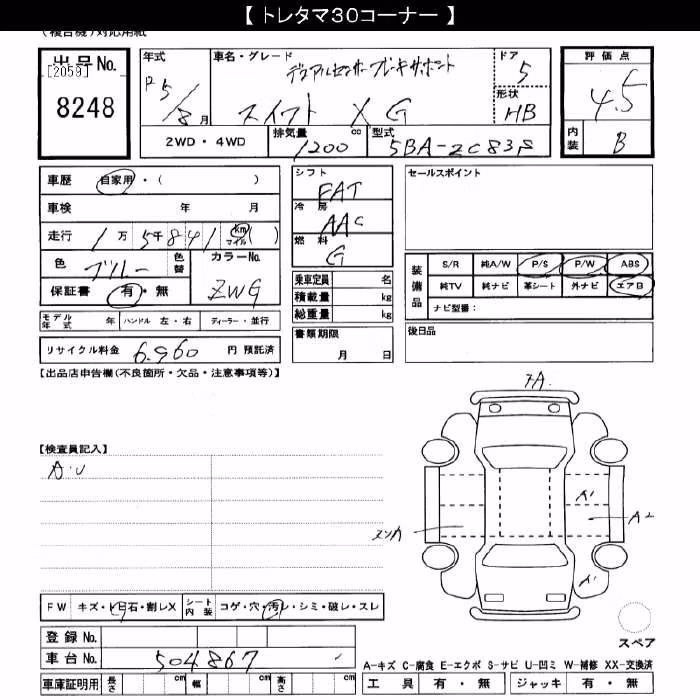 【 トレタマ30コーナー 】
(複合機)対応用紙
出品No.
[2059]
8248
年式
R5/8月
車名・グレード
デュアルセンサーブレーキサポート
スイフト XG
ドア
5
形状
HB
評価点
4.5
内装
B
2WD・4WD
排気量
1200 cc
型式
5BA-ZC83S
車歴 自家用・( )
車検 年 月
走行 1万5千841 (km マイル)
色 ブルー
色替
カラーNo.
ZWG
保証書 有・無
モデル年式 年 ハンドル 左・右 ディーラー・並行
リサイクル料金 6.960 円 預託済
シフト
FAT
冷房
AAC
燃料
G
乗車定員 名
積載量 kg
総重量 kg
書類期限
月 日
セールスポイント
装備品
S/R 純A/W P/S P/W ABS
純TV 純ナビ 革シート 外ナビ エアB
ナビ型番:
後日品
【出品店申告欄(不良箇所・欠品・注意事項等)】
【検査員記入】
A・U
A1
A2
FW キズ・ヒ石・割レX
シート内装 コゲ・穴・汚レ・シミ・破レ・スレ
登録No.
車台No. 504867
車庫証明用 長さ cm 幅 cm 高さ cm
スペア
A-キズ C-腐食 E-エクボ S-サビ U-凹ミ W-補修 XX-交換済
工具 有・無 ジャッキ 有・無